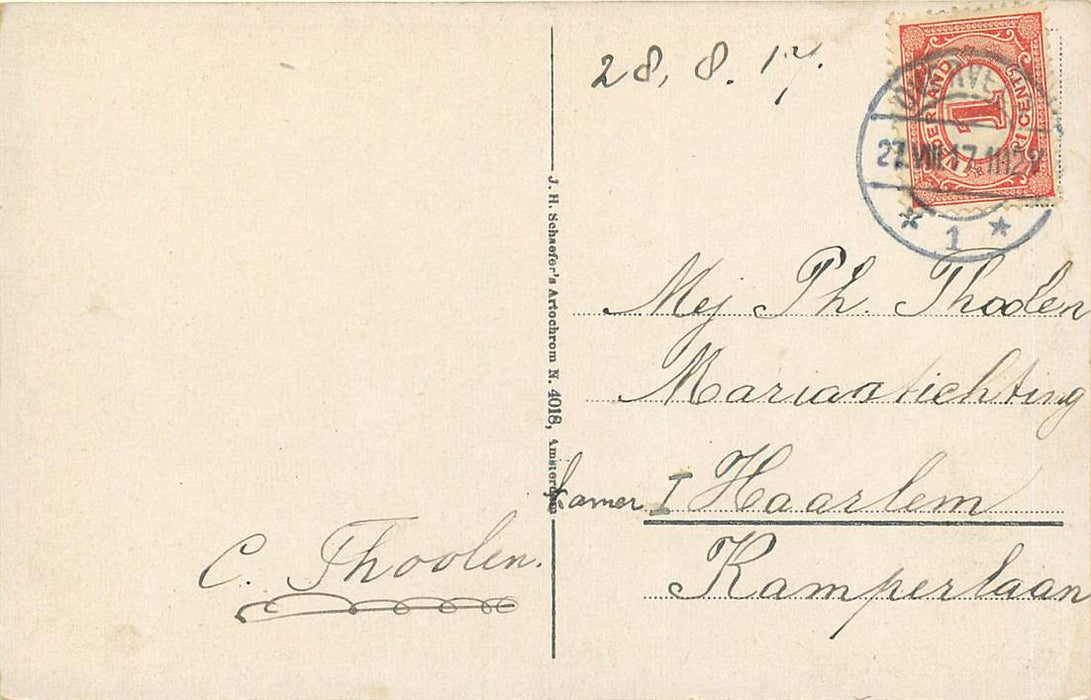 28. 8. 17.
NEDERLAND 1 CENT
27.VIII.17.
1
Mej Ph. Thoolen
Mariastichting
Kamer I Haarlem
Kamperlaan
J. H. Schaefer's Artochrom N. 4018, Amsterdam
C. Thoolen.